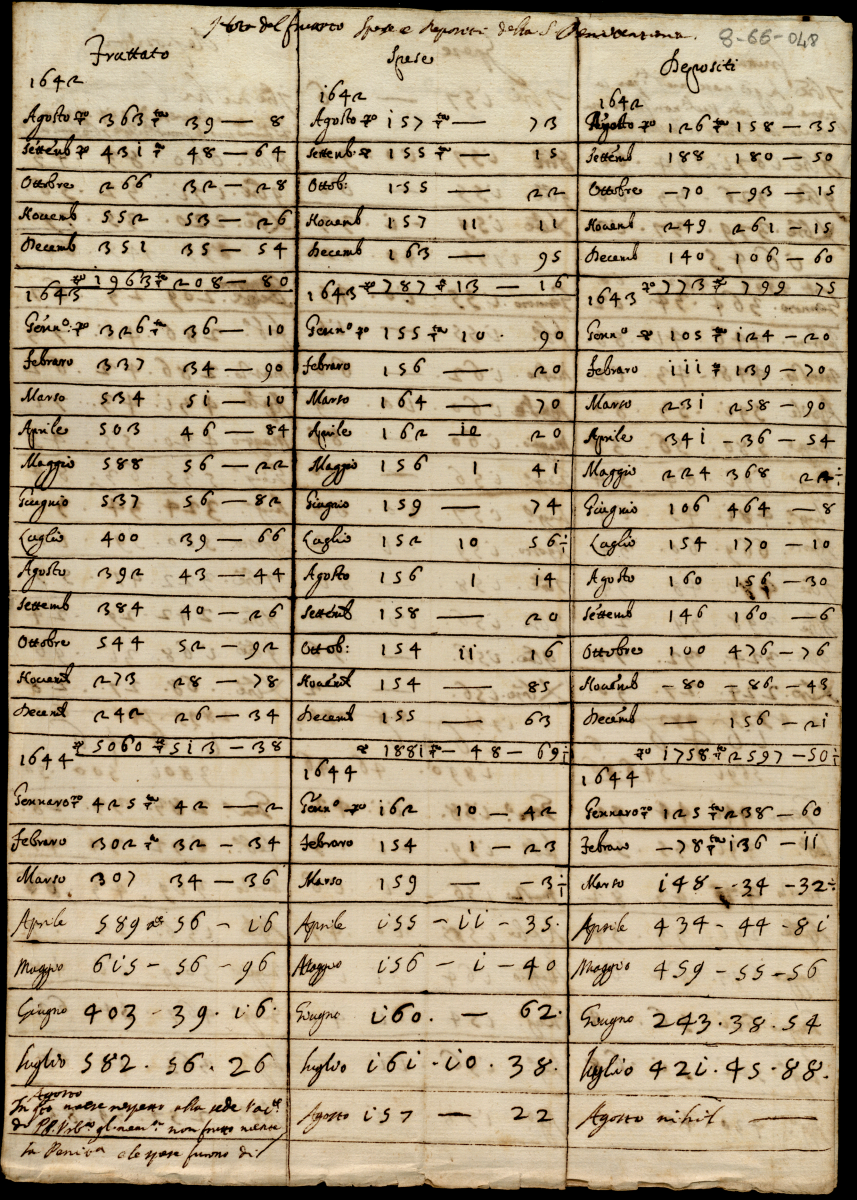 Spese e Depositi della S. Penitentiaria.
8-66-048
Frattato
1642
Agosto 363 39 — 8
Settemb 431 48 — 64
Ottobre 266 32 — 28
Novemb 552 53 — 26
Decemb 351 35 — 54
1963 208 — 80
1643
Genn.o 326 36 — 10
Febraro 337 34 — 90
Marzo 534 51 — 10
Aprile 503 46 — 84
Maggio 588 56 — 22
Giugnio 537 56 — 82
Luglio 400 39 — 66
Agosto 392 43 — 44
Settemb 384 40 — 26
Ottobre 544 52 — 92
Novemb 273 28 — 78
Decemb 242 26 — 34
5060 513 — 38
1644
Gennaro 425 42 — 2
Febraro 302 32 — 34
Marzo 307 34 — 36
Aprile 589 56 - 16
Maggio 615 - 56 - 96
Giugno 403 - 39 . 16 .
Luglio 582 . 56 . 26
Agosto
mese rispetto alla sede
non frutto niente
le spese furono di
Spese
1642
Agosto 157 — 73
Settemb. 155 — 15
Ottob: 155 — 22
Novemb 157 11 11
Decemb 163 — 95
1643 787 13 — 16
Genn.o 155 10 . 90
Febraro 156 — 20
Marzo 164 — 70
Aprile 162 10 20
Maggio 156 1 41
Giugnio 159 — 74
Luglio 152 10 56
Agosto 156 1 14
Settemb 158 — 20
Ottob: 154 11 16
Novemb 154 — 85
Decemb 155 — 63
1881 - 48 - 69
1644
Genn.o 162 10 — 42
Febraro 154 1 — 23
Marzo 159 — - 3
Aprile 155 - 11 - 35 .
Maggio 156 - 1 - 40
Giugno 160 . — 62 .
Luglio 161 - 10 . 38 .
Agosto 157 — 22
Depositi
1642
Agosto 126 158 — 35
Settemb 188 180 — 50
Ottobre - 70 - 93 — 15
Novemb 249 261 — 15
Decemb 140 106 — 60
1643 773 799 75
Genn.o 105 124 — 20
Febraro 111 139 — 70
Marzo 231 258 — 90
Aprile 341 - 36 — 54
Maggio 224 368
Giugnio 106 464 — 8
Luglio 154 170 — 10
Agosto 160 156 — 30
Settemb 146 160 — 6
Ottobre 100 476 — 76
Novemb - 80 - 86 — 43
Decemb — 156 — 21
1758 2597 — 50
1644
Gennaro 125 238 — 60
Febraro - 78 136 — 11
Marzo 148 - - 34 - 32
Aprile 434 - 44 - 81
Maggio 459 - 55 - 56
Giugno 243 . 38 . 54
Luglio 421 . 45 . 88 .
Agosto nihil . —